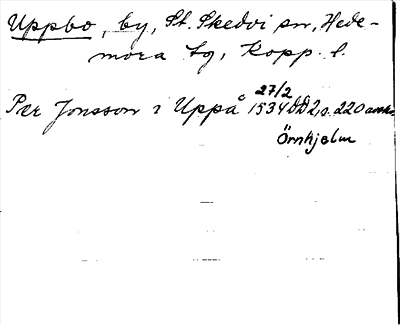 Uppbo, by, St. Skedvi sn, Hede-
mora tg, Kopp. l.
27/2
Per Jonsson i Uppå 1534 DD2, s. 220 avskr.
Örnhjelm